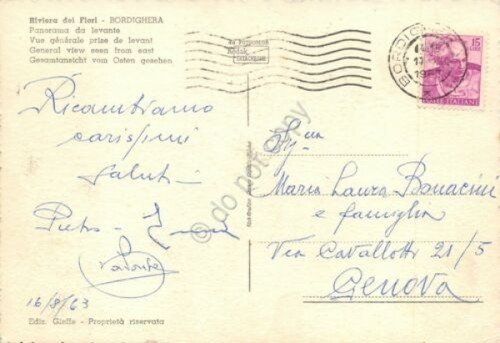 Riviera dei Fiori - BORDIGHERA
Panorama da levante
Vue générale prise de levant
General view seen from east
Gesamtansicht vom Osten gesehen
15
POSTE ITALIANE
BORDIGHERA
Ricambiamo
carissimi
saluti
Pietro
16/8/63
Ediz. Gieffe - Proprietà riservata
Maria Laura Bonacini
e famiglia
Via Cavallotti 21/5
Genova